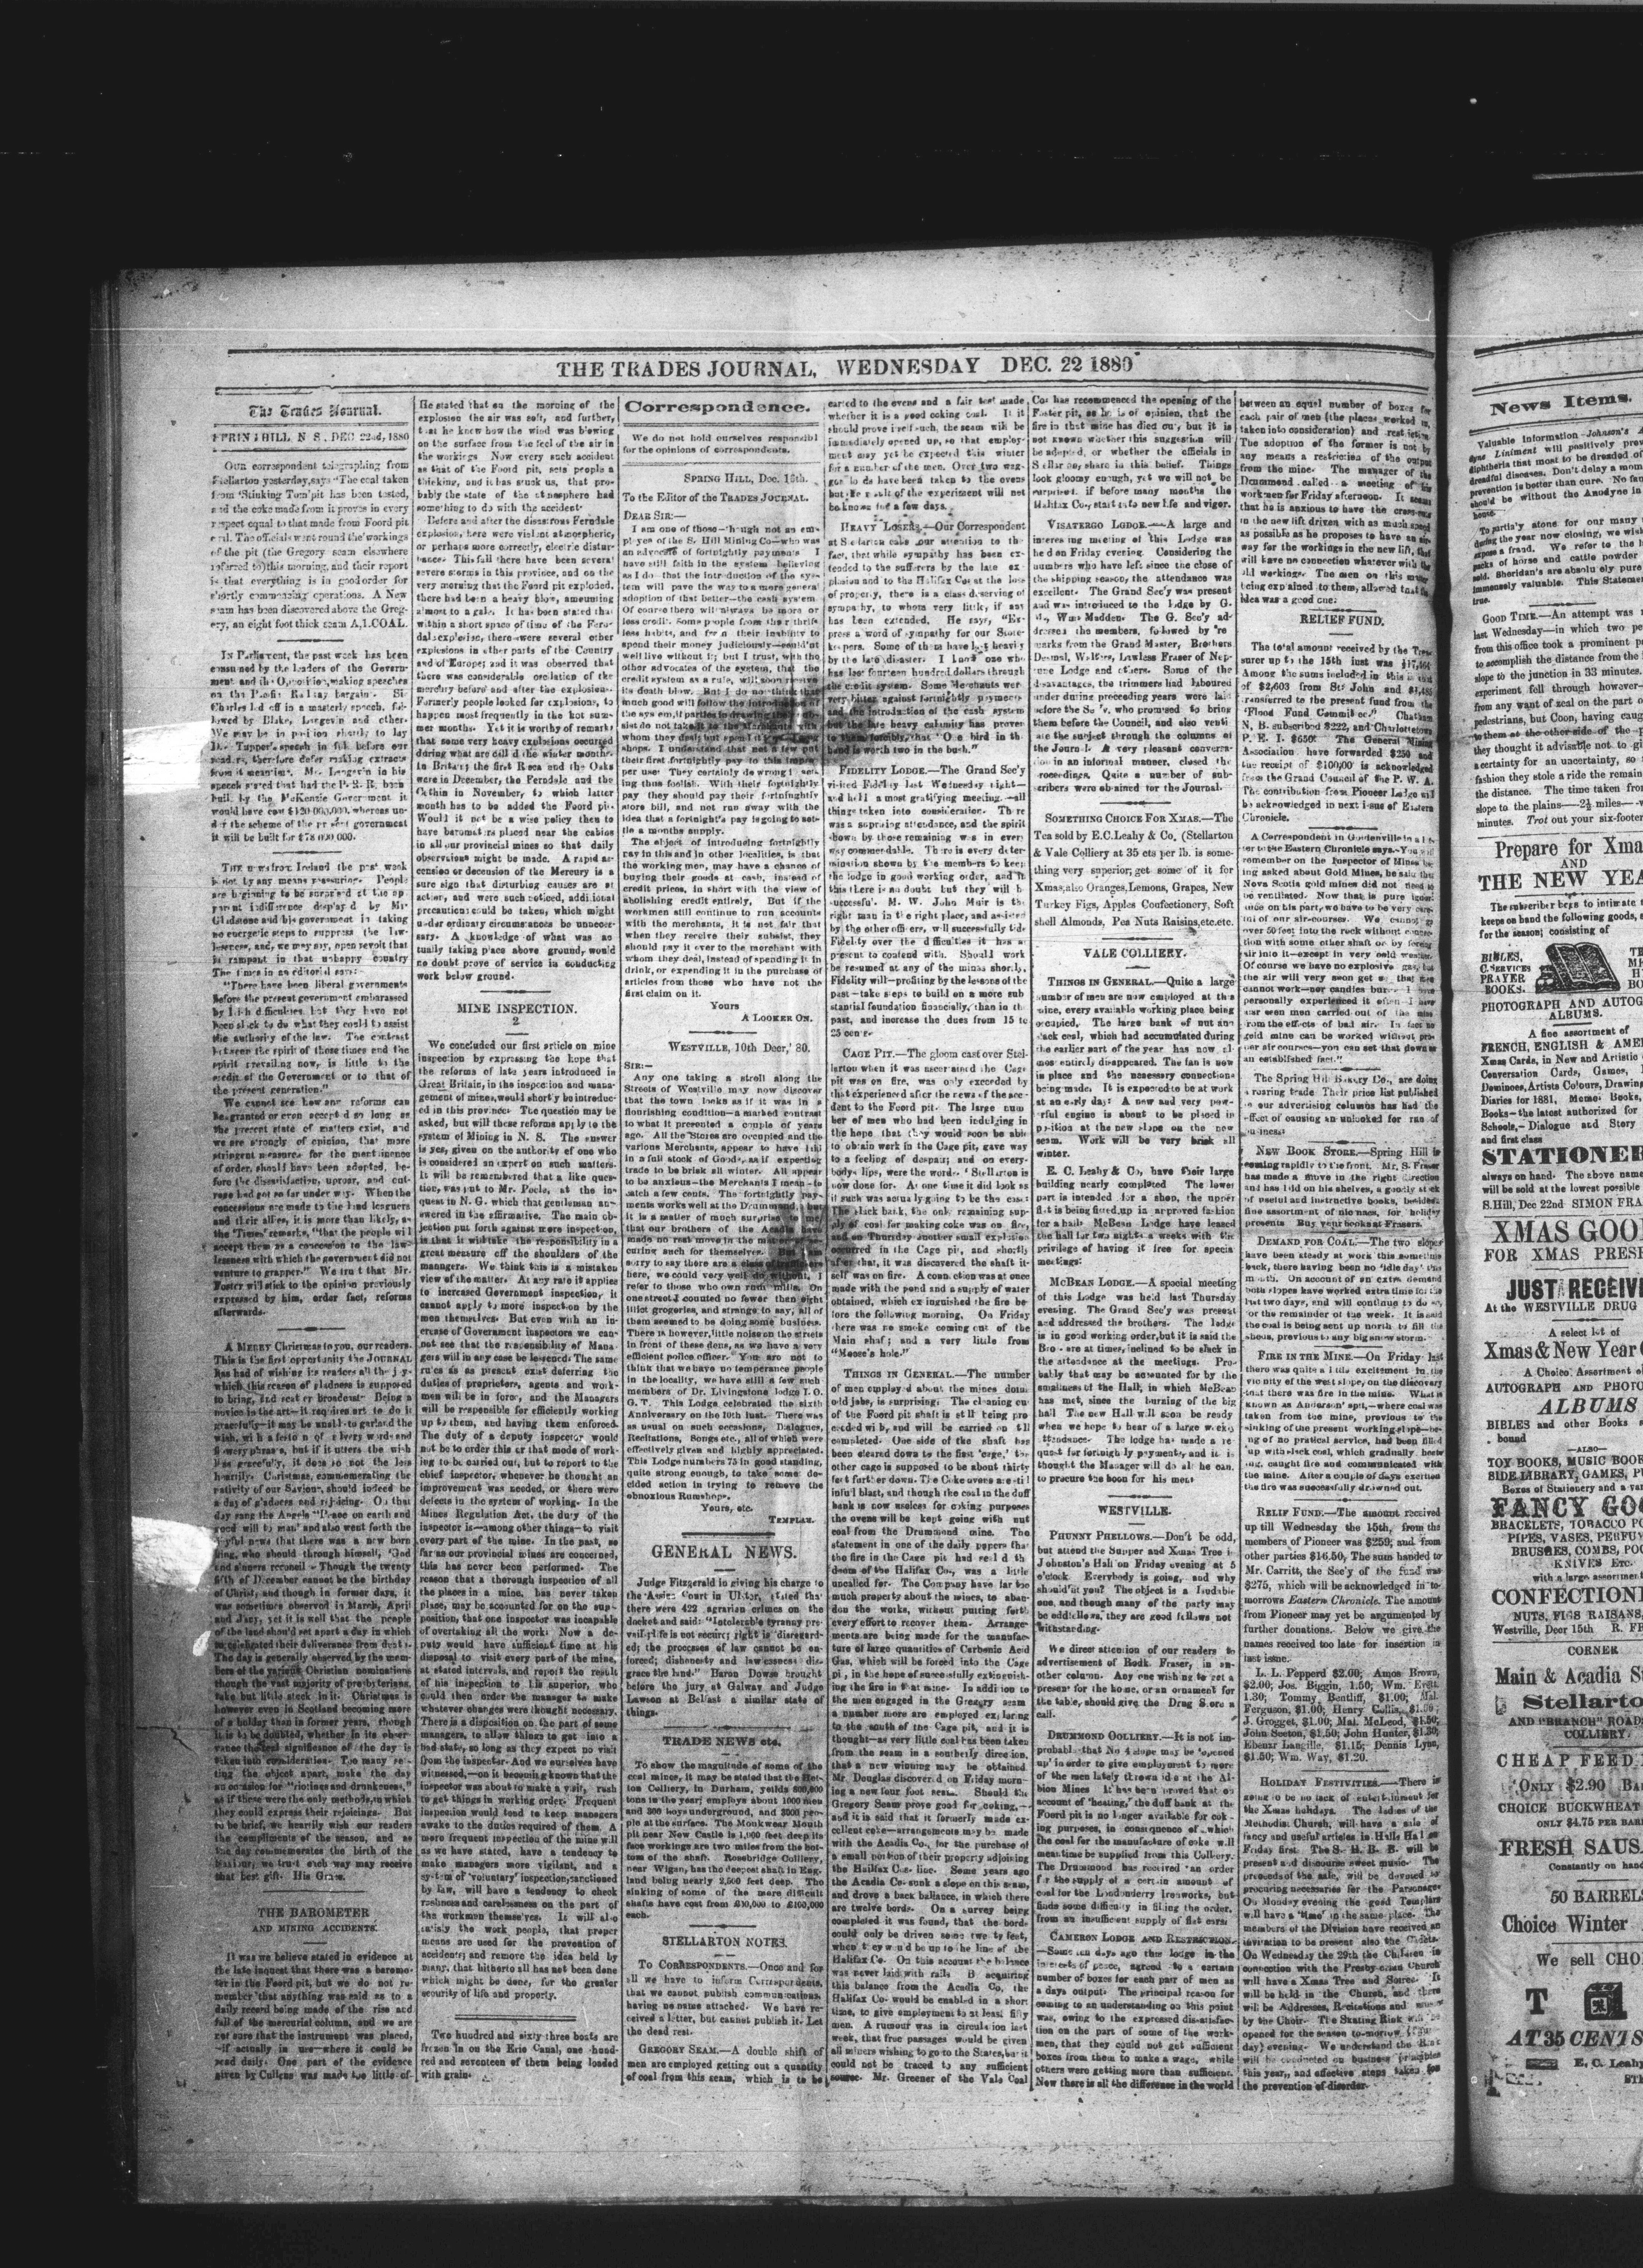 THE TRADES JOURNAL, WEDNESDAY DEC. 22 1880
The Trades Journal.
HILL, N S, DEC 22nd, 1880
OUR correspondent telegraphing from
Stellarton yesterday, says "The coal taken
from 'Stinking Tom' pit has been tested,
and the coke made from it proves in every
respect equal to that made from Foord pit
coal. The officials went round the workings
of the pit (the Gregory seam elsewhere
referred to) this morning, and their report
is that everything is in good order for
shortly commencing operations. A New
seam has been discovered above the Greg-
ory, an eight foot thick seam A,1.COAL.
IN Parliament, the past week has been
consumed by the leaders of the Govern-
ment and the Opposition, making speeches
on the Pacific Railway bargain. Sir
Charles led off in a masterly speech, fol-
lowed by Blake, Langevin and others.
We may be in position shortly to lay
Dr. Tupper's speech in full before our
readers, therefore defer making extracts
from it meantime. Mr. Langevin in his
speech stated that had the P. R. R. been
built by the McKenzie Government it
would have cost $120,000,000, whereas un-
der the scheme of the present government
it will be built for $78,000,000.
THE news from Ireland the past week
is not by any means reassuring. People
are beginning to be surprised at the ap-
parent indifference displayed by Mr.
Gladstone and his government in taking
no energetic steps to suppress the law-
lessness, and, we may say, open revolt that
is rampant in that unhappy country
The Times in an editorial says:
"There have been liberal governments
before the present government embarassed
by Irish difficulties, but they have not
been slack to do what they could to assist
the authority of the law. The contrast
between the spirit of those times and the
spirit prevailing now, is little to the
credit of the Government or to that of
the present generation."
We cannot see how any reforms can
be granted or even accepted so long as
the present state of matters exist, and
we are strongly of opinion, that more
stringent measures for the maintenance
of order, should have been adopted, be-
fore the dissatisfaction, uproar, and out-
rage had got so far under way. When the
concessions are made to the land leaguers
and their allies, it is more than likely, as
the 'Times' remarks, "that the people will
accept them as a concession to the law-
lessness with which the government did not
venture to grapper." We trust that Mr.
Foster will stick to the opinion previously
expressed by him, order fact, reforms
afterwards.
A MERRY Christmas to you, our readers.
This is the first opportunity the JOURNAL
has had of wishing its readers all the joy
which this season of gladness is supposed
to bring, and scatter broadcast. Being a
novice in the art—it requires art to do it
gracefully—it may be unable to garland the
wish, with a festoon of silvery words and
flowery phrases, but if it utters the wish
less gracefully, it does so not the less
heartily. Christmas, commemorating the
nativity of our Saviour, should indeed be
a day of gladness and rejoicing. On that
day sang the Angels "Peace on earth and
good will to man" and also went forth the
joyful news that there was a new born
king, who should through himself, 'God
and sinners reconcile' Though the twenty
fifth of December cannot be the birthday
of Christ, and though in former days, it
was sometimes observed in March, April
and May, yet it is well that the people
of the land should set apart a day in which
to celebrate their deliverance from death.
The day is generally observed by the mem-
bers of the various Christian nominations
though the vast majority of presbyterians,
take but little stock in it. Christmas is
however even in Scotland becoming more
of a holiday than in former years, though
it is to be doubted, whether in its obser-
vance the real significance of the day is
taken into consideration. Too many set-
ting the object apart, make the day
an occasion for "riotings and drunkeness,"
as if these were the only methods, in which
they could express their rejoicings. But
to be brief, we heartily wish our readers
the compliments of the season, and as
the day commemorates the birth of the
Saviour, we trust each way may receive
that best gift. His Grace.
THE BAROMETER
AND MINING ACCIDENTS.
It was we believe stated in evidence at
the late inquest that there was a barome-
ter in the Foord pit, but we do not re-
member that anything was said as to a
daily record being made of the rise and
fall of the mercurial column, and we are
not sure that the instrument was placed,
—if actually in use—where it could be
read daily. One part of the evidence
given by Cullens was made too little of.
He stated that on the morning of the
explosion the air was soft, and further,
that he knew how the wind was blowing
on the surface from the feel of the air in
the workings. Now every such accident
as that of the Foord pit, sets people a
thinking, and it has struck us, that pro-
bably the state of the atmosphere had
something to do with the accident.
Before and after the disastrous Ferndale
explosion, there were violent atmospheric,
or perhaps more correctly, electric distur-
bance. This fall there have been several
severe storms in this province, and on the
very morning that the Foord pit exploded,
there had been a heavy blow, amounting
almost to a gale. It has been stated that
within a short space of time of the Fern-
dale explosion, there were several other
explosions in other parts of the Country
and of Europe; and it was observed that
there was considerable oscilation of the
mercury before and after the explosion.
Formerly people looked for explosions, to
happen most frequently in the hot sum-
mer months. Yet it is worthy of remark
that some very heavy explosions occurred
during what are called the winter months.
In Britain; the first Risca and the Oaks
were in December, the Ferndale and the
Cethin in November, to which latter
month has to be added the Foord pit.
Would it not be a wise policy then to
have barometers placed near the cabins
in all our provincial mines so that daily
observations might be made. A rapid as-
cension or decension of the Mercury is a
sure sign that disturbing causes are at
action, and were such noticed, additional
precautions could be taken, which might
under ordinary circumstances be unneces-
sary. A knowledge of what was ac-
tually taking place above ground, would
no doubt prove of service in conducting
work below ground.
MINE INSPECTION.
2
We concluded our first article on mine
inspection by expressing the hope that
the reforms of late years introduced in
Great Britain, in the inspection and mana-
gement of mines, would shortly be introduc-
ed in this province. The question may be
asked, but will these reforms apply to the
system of Mining in N. S. The answer
is yes, given on the authority of one who
is considered an expert on such matters.
It will be remembered that a like ques-
tion, was put to Mr. Poole, at the in-
quest in N. G. which that gentleman an-
swered in the affirmative. The main ob-
jection put forth against more inspection,
is that it will take the responsibility in a
great measure off the shoulders of the
managers. We think this is a mistaken
view of the matter. At any rate it applies
to increased Government inspection, it
cannot apply to more inspection by the
men themselves. But even with an in-
crease of Government inspectors we can-
not see that the responsibility of Mana-
gers will in any case be lessened. The same
rules as at present exist deferring the
duties of proprietors, agents and work-
men will be in force, and the Managers
will be responsible for efficiently working
up to them, and having them enforced.
The duty of a deputy inspector would
not be to order this or that mode of work-
ing to be carried out, but to report to the
chief inspector, whenever he thought an
improvement was needed, or there were
defects in the system of working. In the
Mines Regulation Act, the duty of the
inspector is—among other things—to visit
every part of the mine. In the past, so
far as our provincial mines are concerned,
this has never been performed. The
reason that a thorough inspection of all
the places in a mine, has never taken
place, may be accounted for on the sup-
position, that one inspector was incapable
of overtaking all the work. Now a de-
puty would have sufficient time at his
disposal to visit every part of the mine,
at stated intervals, and report the result
of his inspection to his superior, who
could then order the manager to make
whatever changes were thought necessary.
There is a disposition on the part of some
managers, to allow things to get into a
bad state, so long as they expect no visit
from the inspector. And we ourselves have
witnessed,—on it becoming known that the
inspector was about to make a visit, rush
to get things in working order. Frequent
inspection would tend to keep managers
awake to the duties required of them. A
more frequent inspection of the mine will
as we have stated, have a tendency to
make managers more vigilant, and a
system of 'voluntary' inspection, sanctioned
by law, will have a tendency to check
rashness and carelessness on the part of
the workmen themselves. It will also
satisfy the work people, that proper
means are used for the prevention of
accidents; and remove the idea held by
many, that hitherto all has not been done
which might be done, for the greater
security of life and property.
Two hundred and sixty three boats are
frozen in on the Erie Canal, one hund-
red and seventeen of them being loaded
with grain.
Correspondence.
We do not hold ourselves responsibl
for the opinions of correspondents.
SPRING HILL, Dec. 15th.
To the Editor of the TRADES JOURNAL.
DEAR SIR:—
I am one of those—though not an em-
ployee of the S. Hill Mining Co—who was
an advocate of fortnightly payments I
have still faith in the system believing
as I do that the introduction of the sys-
tem will pave the way to a more general
adoption of that better—the cash system
Of course there will always be more or
less credit. Some people from their thrift-
less habits, and from their inability to
spend their money judiciously—could'nt
well live without it; but I trust, with the
other advocates of the system, that the
credit system as a rule, will soon receive
its death blow. But I do not think that
much good will follow the introduction of
the system, if parties in drawing their sub-
sist do not take it to the Merchants with
whom they deal; but spend it
shops. I understand that not a few put
their first fortnightly pay to this impro-
per use They certainly do wrong in act-
ing thus foolish. With their fortnightly
pay they should pay their fortnightly
store bill, and not run away with the
idea that a fortnight's pay is going to set-
tle a months supply.
The object of introducing fortnightly
pay in this and in other localities, is that
the working men, may have a chance of
buying their goods at cash, instead of
credit prices, in short with the view of
abolishing credit entirely. But if the
workmen still continue to run accounts
with the merchants, it is not fair that
when they receive their subsist, they
should pay it over to the merchant with
whom they deal, instead of spending it in
drink, or expending it in the purchase of
articles from those who have not the
first claim on it.
Yours
A LOOKER ON.
WESTVILLE, 10th Decr,' 80.
SIR:—
Any one taking a stroll along the
Streets of Westville may now discover
that the town looks as if it was in a
flourishing condition—a marked contrast
to what it presented a couple of years
ago. All the Stores are occupied and the
various Merchants, appear to have laid
in a full stock of Goods, as if expecting
trade to be brisk all winter. All appear
to be anxious—the Merchants I mean—to
catch a few cents. The fortnightly pay-
ments works well at the Drummond, but
it is a matter of much surprise to me
that our brothers of the Acadia have
made no real move in the matter of se-
curing such for themselves. But I am
sorry to say there are a class of traffickers
here, we could very well do without, I
refer to those who own rum mills. On
one street I counted no fewer then eight
illict grogeries, and strange to say, all of
them seemed to be doing some business.
There is however, little noise on the streets
in front of these dens, as we have a very
efficient police officer. You are not to
think that we have no temperance people
in the locality, we have still a few such
members of Dr. Livingstone lodge I. O.
G. T. This Lodge celebrated the sixth
Anniversary on the 10th inst. There was
as usual on such occasions, Dialogues,
Recitations, Songs etc., all of which were
effectively given and highly appreciated.
This Lodge numbers 75 in good standing,
quite strong enough, to take some de-
cided action in trying to remove the
obnoxious Rumshops.
Yours, etc.
TEMPLAR.
GENERAL NEWS.
Judge Fitzgerald in giving his charge to
the Assize Court in Ulster, stated that
there were 422 agrarian crimes on the
docket and said: "Intolerable tyranny pre-
vail; life is not secure; right is disregard-
ed; the processes of law cannot be en-
forced; dishonesty and lawlessness dis-
grace the land." Baron Dowse brought
before the jury at Galway and Judge
Lawson at Belfast a similar state of
things.
TRADE NEWS etc.
To show the magnitude of some of the
coal mines, it may be stated that the Het-
ton Colliery, in Durham, yeilds 800,000
tons in the year; employs about 1000 men
and 300 boys underground, and 3000 peo-
ple at the surface. The Monkwear Mouth
pit near New Castle is 1,900 feet deep its
face workings are two miles from the bot-
tom of the shaft. Rosebridge Colliery,
near Wigan, has the deepest shaft in Eng-
land being nearly 2,500 feet deep. The
sinking of some of the more difficult
shafts have cost from £10,000 to £100,000
each.
STELLARTON NOTES.
TO CORRESPONDENTS.—Once and for
all we have to inform Correspondents,
that we cannot publish communications,
having no name attached. We have re-
ceived a letter, but cannot publish it. Let
the dead rest.
GREGORY SEAM.—A double shift of
men are employed getting out a quantity
of coal from this seam, which is to be
carted to the ovens and a fair test made
whether it is a good coking coal. If it
should prove itself such, the seam will be
immediately opened up, so that employ-
ment may yet be expected this winter
for a number of the men. Over two wag-
gon loads have been taken to the ovens
but the result of the experiment will not
be known for a few days.
HEAVY LOSERS.—Our Correspondent
at Stellarton calls our attention to the
fact, that while sympathy has been ex-
tended to the sufferers by the late ex-
plosion and to the Halifax Co. at the loss
of property, there is a class deserving of
sympathy, to whom very little, if any
has been extended. He says, "Ex-
press a word of sympathy for our Store-
keepers. Some of them have lost heavily
by the late disaster. I know one who
has lost fourteen hundred dollars through
the credit system. Some Merchants were
very bitter against fortnightly payments
and the introduction of the cash system
but the late heavy calamity has proven
to them forcibly, that "One bird in the
hand is worth two in the bush."
FIDELITY LODGE.—The Grand Sec'y
visited Fidelity last Wednesday night—
and held a most gratifying meeting,—all
things taken into consideration. There
was a suprising attendance, and the spirit
shown by those remaining was in every
way commendable. There is every deter-
mination shown by the members to keep
the lodge in good working order, and in
this there is no doubt but they will be
successful. M. W. John Muir is the
right man in the right place, and assisted
by the other officers, will successfully tide
Fidelity over the difficulties it has at
present to contend with. Should work
be resumed at any of the mines shortly,
Fidelity will—profiting by the lessons of the
past—take steps to build on a more sub-
stantial foundation financially, than in the
past, and increase the dues from 15 to
25 cents.
CAGE PIT.—The gloom cast over Stel-
larton when it was ascertained the Cage
pit was on fire, was only exceeded by
that experienced after the news of the acci-
dent to the Foord pit. The large num-
ber of men who had been indulging in
the hope that they would soon be able
to obtain work in the Cage pit, gave way
to a feeling of despair; and on every-
body's lips, were the words, 'Stellarton is
now done for. At one time it did look as
if such was actually going to be the case:
The slack bank, the only remaining sup-
ply of coal for making coke was on fire,
and on Thursday another small explosion
occurred in the Cage pit, and shortly
after that, it was discovered the shaft it-
self was on fire. A connection was at once
made with the pond and a supply of water
obtained, which extinguished the fire be-
fore the following morning. On Friday
there was no smoke coming out of the
Main shaft; and a very little from
"Moose's hole."
THINGS IN GENERAL.—The number
of men employed about the mines doing
odd jobs, is surprising. The cleaning out
of the Foord pit shaft is still being pro-
ceeded with, and will be carried on till
completed. One side of the shaft has
been cleared down to the first 'cage,' the
other cage is supposed to be about thirty
feet further down. The Coke ovens are still
in full blast, and though the coal in the duff
bank is now useless for coking purposes
the ovens will be kept going with nut
coal from the Drummond mine. The
statement in one of the daily papers that
the fire in the Cage pit had sealed the
doom of the Halifax Co., was a little
uncalled for. The Company have far too
much property about the mines, to aban-
don the works, without putting forth
every effort to recover them. Arrange-
ments are being made for the manufac-
ture of large quantities of Carbonic Acid
Gas, which will be forced into the Cage
pit, in the hope of successfully extinguish-
ing the fire in that mine. In addition to
the men engaged in the Gregory seam
a number more are employed exploring
to the south of the Cage pit, and it is
thought—as very little coal has been taken
from the seam in a southerly direction,
that a new winning may be obtained.
Mr. Douglas discovered on Friday morn-
ing a new four foot seam. Should the
Gregory Seam prove good for coking,—
and it is said that it formerly made ex-
cellent coke—arrangements may be made
with the Acadia Co., for the purchase of
a small portion of their property adjoining
the Halifax Co's line. Some years ago
the Acadia Co. sunk a slope on this seam,
and drove a back balance, in which there
are twelve bords. On a survey being
completed it was found, that the bords
could only be driven some twenty feet,
when they would be up to the line of the
Halifax Co. On this account the balance
was never laid with rails By acquiring
this balance from the Acadia Co, the
Halifax Co. would be enabled in a short
time, to give employment to at least fifty
men. A rumour was in circulation last
week, that free passages would be given
all miners wishing to go to the States, but it
could not be traced to any sufficient
source. Mr. Greener of the Vale Coal
Co. has recommended the opening of the
Foster pit, as he is of opinion, that the
fire in that mine has died out, but it is
not known whether this suggestion will
be adopted, or whether the officials in
Stellarton, share in this belief. Things
look gloomy enough, yet we will not be
surprised, if before many months the
Halifax Co., start into new life and vigor.
VISATERGO LODGE.—A large and
interesting meeting of this Lodge was
held on Friday evening. Considering the
numbers who have left since the close of
the shipping season, the attendance was
excellent. The Grand Sec'y was present
and was introduced to the lodge by G.
M., Wm. Madden. The G. Sec'y ad-
dressed the members, followed by re-
marks from the Grand Master, Brothers
Desmal, Walters, Lawless Fraser of Nep-
tune Lodge and others. Some of the
disadvantages, the trimmers had laboured
under during preceeding years were laid
before the Sec'y, who promised to bring
them before the Council, and also venti-
late the subject through the columns of
the Journal. A very pleasant conversa-
tion in an informal manner, closed the
proceedings. Quite a number of sub-
scribers were obtained for the Journal.
SOMETHING CHOICE FOR XMAS.—The
Tea sold by E.C.Leahy & Co, (Stellarton
& Vale Colliery at 35 cts per lb. is some-
thing very superior; get some of it for
Xmas; also Oranges, Lemons, Grapes, New
Turkey Figs, Apples Confectionery, Soft
shell Almonds, Pea Nuts Raisins, etc. etc.
VALE COLLIERY.
THINGS IN GENERAL.—Quite a large
number of men are now employed at this
mine, every available working place being
occupied. The large bank of nut and
slack coal, which had accumulated during
the earlier part of the year has now al-
most entirely disappeared. The fan is now
in place and the necessary connections
being made. It is expected to be at work
at an early day: A new and very pow-
erful engine is about to be placed in
position at the new slope on the new
seam. Work will be very brisk all
winter.
E. C. Leahy & Co, have their large
building nearly completed The lower
part is intended for a shop, the upper
flat is being fitted up in approved fashion
for a hall. McBean Lodge have leased
the hall for two nights a weeks with the
privilege of having it free for special
meetings:
MCBEAN LODGE.—A special meeting
of this Lodge was held last Thursday
evening. The Grand Sec'y was present
and addressed the brothers. The lodge
is in good working order, but it is said the
Bros. are at times, inclined to be slack in
the attendance at the meetings. Pro-
bably that may be accounted for by the
smallness of the Hall, in which McBean
has met, since the burning of the big
hall The new Hall will soon be ready
when we hope to hear of a large weekly
attendance. The lodge has made a re-
quest for fortnightly payments, and it is
thought the Manager will do all he can.
to procure the boon for his men.
WESTVILLE.
PHUNNY PHELLOWS.—Don't be odd,
but attend the Supper and Xmas Tree in
Johnston's Hall on Friday evening at 5
o'clock. Everybody is going, and why
should'nt you? The object is a laudable
one, and though many of the party may
be oddfellows, they are good fellows not
withstanding.
We direct attention of our readers to
advertisement of Rodk. Fraser, in an-
other column. Any one wishing to get a
present for the home, or an ornament for
the table, should give the Drug Store a
call.
DRUMMOND COLLIERY.—It is not im-
probable that No 4 slope may be 'opened
up' in order to give employment to more
of the men lately thrown idle at the Al-
bion Mines It has been proved that on
account of "heating," the duff bank at the
Foord pit is no longer available for cok-
ing purposes, in consequence of which
the coal for the manufacture of coke will
meantime be supplied from this Colliery.
The Drummond has received an order
for the supply of a certain amount of
coal for the Londonderry Ironworks, but
finds some difficulty in filling the order,
from an insufficient supply of flat cars.
CAMERON LODGE AND RESTRICTION.
—Some ten days ago this lodge in the
interests of peace, agreed to a certain
number of boxes for each pair of men as
a days output: The principal reason for
coming to an understanding on this point
was, owing to the expressed dissatisfac-
tion on the part of some of the work-
men, that they could not get sufficient
boxes from them to make a wage, while
others were getting more than sufficient.
Now there is all the difference in the world
between an equal number of boxes for
each pair of men (the places worked in,
taken into consideration) and restriction.
The adoption of the former is not by
any means a restriction of the output
from the mine. The manager of the
Drummond called a meeting of his
workmen for Friday afternoon. It seems
that he is anxious to have the cross-cuts
in the new lift driven with as much speed
as possible as he proposes to have an air-
way for the workings in the new lift, that
will have no connection whatever with the
old workings. The men on this matter
being explained to them, allowed that the
idea was a good one.
RELIEF FUND.
The total amount received by the Trea-
surer up to the 15th inst was $17,464
Among the sums included in this is that
of $2,603 from St: John and $1,485
transferred to the present fund from the
'Flood Fund Committee.' Chatham
N. B. subscribed $222, and Charlottetown
P. E. I. $650. The General Mining
Association have forwarded $250 and
the receipt of $100,00 is acknowledged
from the Grand Council of the P. W. A.
The contribution from Pioneer Lodge will
be acknowledged in next issue of Eastern
Chronicle.
A Correspondent in Goldenville in a let-
ter to the Eastern Chronicle says.—You will
remember on the Inspector of Mines be-
ing asked about Gold Mines, he said the
Nova Scotia gold mines did not need to
be ventilated. Now that is pure ignor-
ance on his part, we have to be very care-
ful of our air-courses. We cannot go
over 50 feet into the rock without connec-
tion with some other shaft or by forcing
air into it—except in very cold weather.
Of course we have no explosive gas, but
the air will very soon get so that men
cannot work—nor candles burn— I have
personally experienced it often—I have
ear seen men carried out of the mine
from the effects of bad air. In fact no
gold mine can be worked without pro-
per air courses—you can set that down as
an established fact."
The Spring Hill Bakery Co., are doing
a roaring trade Their price list published
in our advertising columns has had the
effect of causing an unlooked for run of
business.
NEW BOOK STORE.—Spring Hill is
coming rapidly to the front. Mr. S. Fraser
has made a move in the right direction
and has laid on his shelves, a goodly stock
of useful and instructive books, besides a
fine assortment of nicnacs, for holiday
presents Buy your books at Frasers.
DEMAND FOR COAL.—The two slopes
have been steady at work this sometime
back, there having been no 'idle day' this
month. On account of an extra demand
both slopes have worked extra time for the
last two days, and will continue to do so,
for the remainder of the week. It is said
the coal is being sent up north to fill the
sheds, previous to any big snow storm.
FIRE IN THE MINE.—On Friday last
there was quite a little excitement in the
vicinity of the west slope, on the discovery
that there was fire in the mine. What is
known as Anderson' spit,—where coal was
taken from the mine, previous to the
sinking of the present working slope—be-
ing of no pratical service, had been filled
up with slack coal, which gradually heat-
ing, caught fire and communicated with
the mine. After a couple of days exertion
the fire was successfully drowned out.
RELIF FUND.—The amount received
up till Wednesday the 15th, from the
members of Pioneer was $259; and from
other parties $16.50, The sum handed to
Mr. Carritt, the Sec'y of the fund was
$275, which will be acknowledged in to-
morrows Eastern Chronicle. The amount
from Pioneer may yet be argumented by
further donations. Below we give the
names received too late for insertion in
last issue.
L. L. Pepperd $2.00; Amos Brown,
$2.00; Jos. Biggin, 1.50; Wm. Evett.
1.30; Tommy Bentliff, $1.00; Mal.
Ferguson, $1.00; Henry Collis, $1.00;
J. Grogget, $1.00; Mal. McLeod, $1.50;
John Seeton, $1.50; John Hunter, $1.30;
Ebenzr Langille, $1.15; Dennis Lynn,
$1.50; Wm. Way, $1.20.
HOLIDAY FESTIVITIES.—There is
going to be no lack of entertainment for
the Xmas holidays. The ladies of the
Methodist Church, will have a sale of
fancy and useful articles in Halls Hall on
Friday first The S. H. B. B. will be
present and discourse sweet music. The
proceeds of the sale, will be devoted to
procuring necessaries for the Parsonage
On Monday evening the good Templars
will have a 'time' in the same place. The
members of the Division have received an
invitation to be present also the Cadets.
On Wednesday the 29th the Children in
connection with the Presbyterian Church
will have a Xmas Tree and Soiree. It
will be held in the Church, and there
will be Addresses, Recitations and music
by the Choir. The Skating Rink will be
opened for the season to-morrow (Thurs-
day) evening. We understand the Rink
will be conducted on business principles
this year, and effective steps taken for
the prevention of disorder.
News Items.
Valuable Information—Johnson's
dyne Liniment will positively
diphtheria that most to be dreaded of
dreadful diseases. Don't delay a
prevention is better than cure. No
should be without the Anodyne in
house.
To partia'y atone for our many
during the year now closing, we wish
expose a fraud. We refer to the
packs of horse and cattle powder
sold. Sheridan's are absolutely pure
immensely valuable. This
true.
GOOD TIME.—An attempt was
last Wednesday—in which two
from this office took a prominent
to accomplish the distance from the
slope to the junction in 33 minutes.
experiment fell through however—
from any want of zeal on the part
pedestrians, but Coon, having
to them at the other side of the
they thought it advisable not to
a certainty for an uncertainty, so
fashion they stole a ride the
the distance. The time taken from
slope to the plains—2½ miles—
minutes. Trot out your six-footer
Prepare for Xma
AND
THE NEW YEA
The subscriber begs to intimate
keeps on hand the following goods,
for the season; consisting of
BIBLES,
C. SERVICES
PRAYER
BOOKS.
PHOTOGRAPH AND AUTOG
ALBUMS.
A fine assortment of
FRENCH, ENGLISH & AME
Xmas Cards, in New and Artistic
Conversation Cards, Games,
Dominoes, Artists Colours, Drawing
Diaries for 1881, Memo: Books,
Books—the latest authorized for
Schools,—Dialogue and Story
and first class
STATIONER
always on hand. The above
will be sold at the lowest possible
S. Hill, Dec 22nd SIMON FRA
XMAS GOO
FOR XMAS PRES
JUST RECEIV
At the WESTVILLE DRUG
A select lot of
Xmas & New Year
A Choice Assortment of
AUTOGRAPH AND PHOTO
ALBUMS
BIBLES and other Books
bound
—ALSO—
TOY BOOKS, MUSIC BOOK
SIDE LIBRARY, GAMES,
Boxes of Stationery and a
FANCY GOO
BRACELETS, TOBACCO PO
PIPES, VASES, PERFUM
BRUSHES, COMBS, POC
KNIVES Etc.
with a large assortment
CONFECTION
NUTS, FIGS RAISANS,
Westville, Decr 15th R. FR
CORNER
Main & Acadia S
Stellarto
AND "BRANCH" ROAD
COLLIERY.
CHEAP FEED
ONLY $2.90
CHOICE BUCKWHEAT
ONLY $4.75 PER BAR
FRESH SAUS
Constantly on hand
50 BARRELS
Choice Winter
We sell CHO
T
AT 35 CENTS
E. C. Leahy